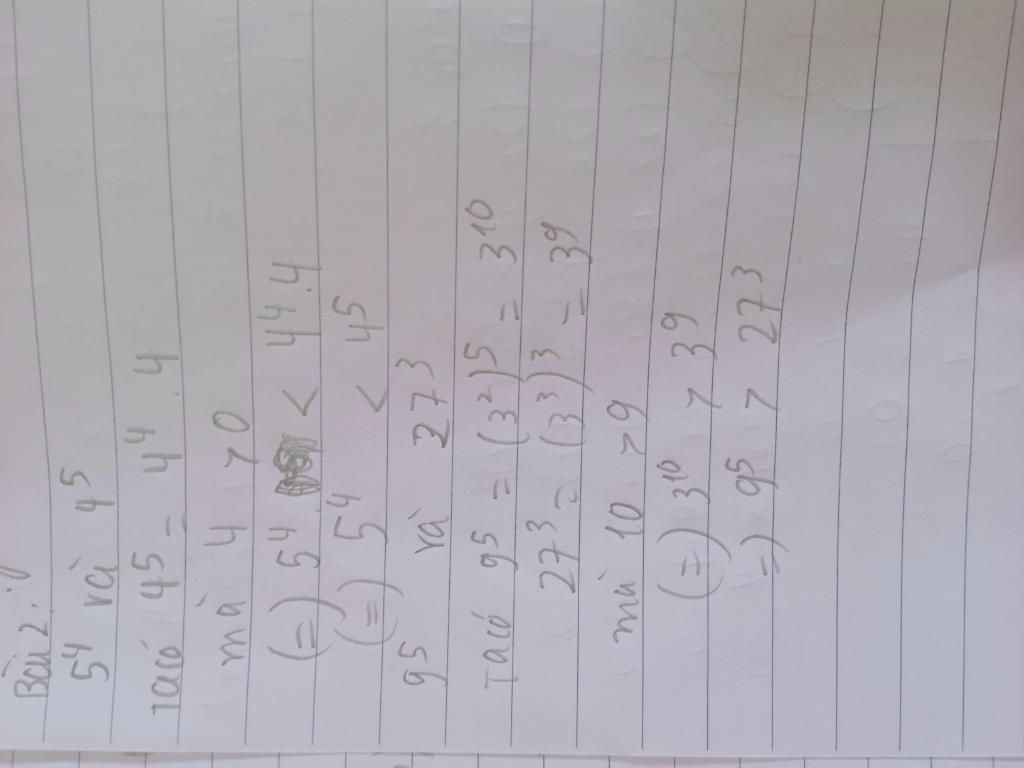 Bài 2:
5⁴ và 4⁵
Ta có 4⁵ = 4⁴ . 4
mà 4 > 0
(=) 5⁴ < 4⁴.4
(=) 5⁴ < 4⁵
9⁵ và 27³
Ta có 9⁵ = (3²)⁵ = 3¹⁰
27³ = (3³)³ = 3⁹
mà 10 > 9
(=) 3¹⁰ > 3⁹
=) 9⁵ > 27³